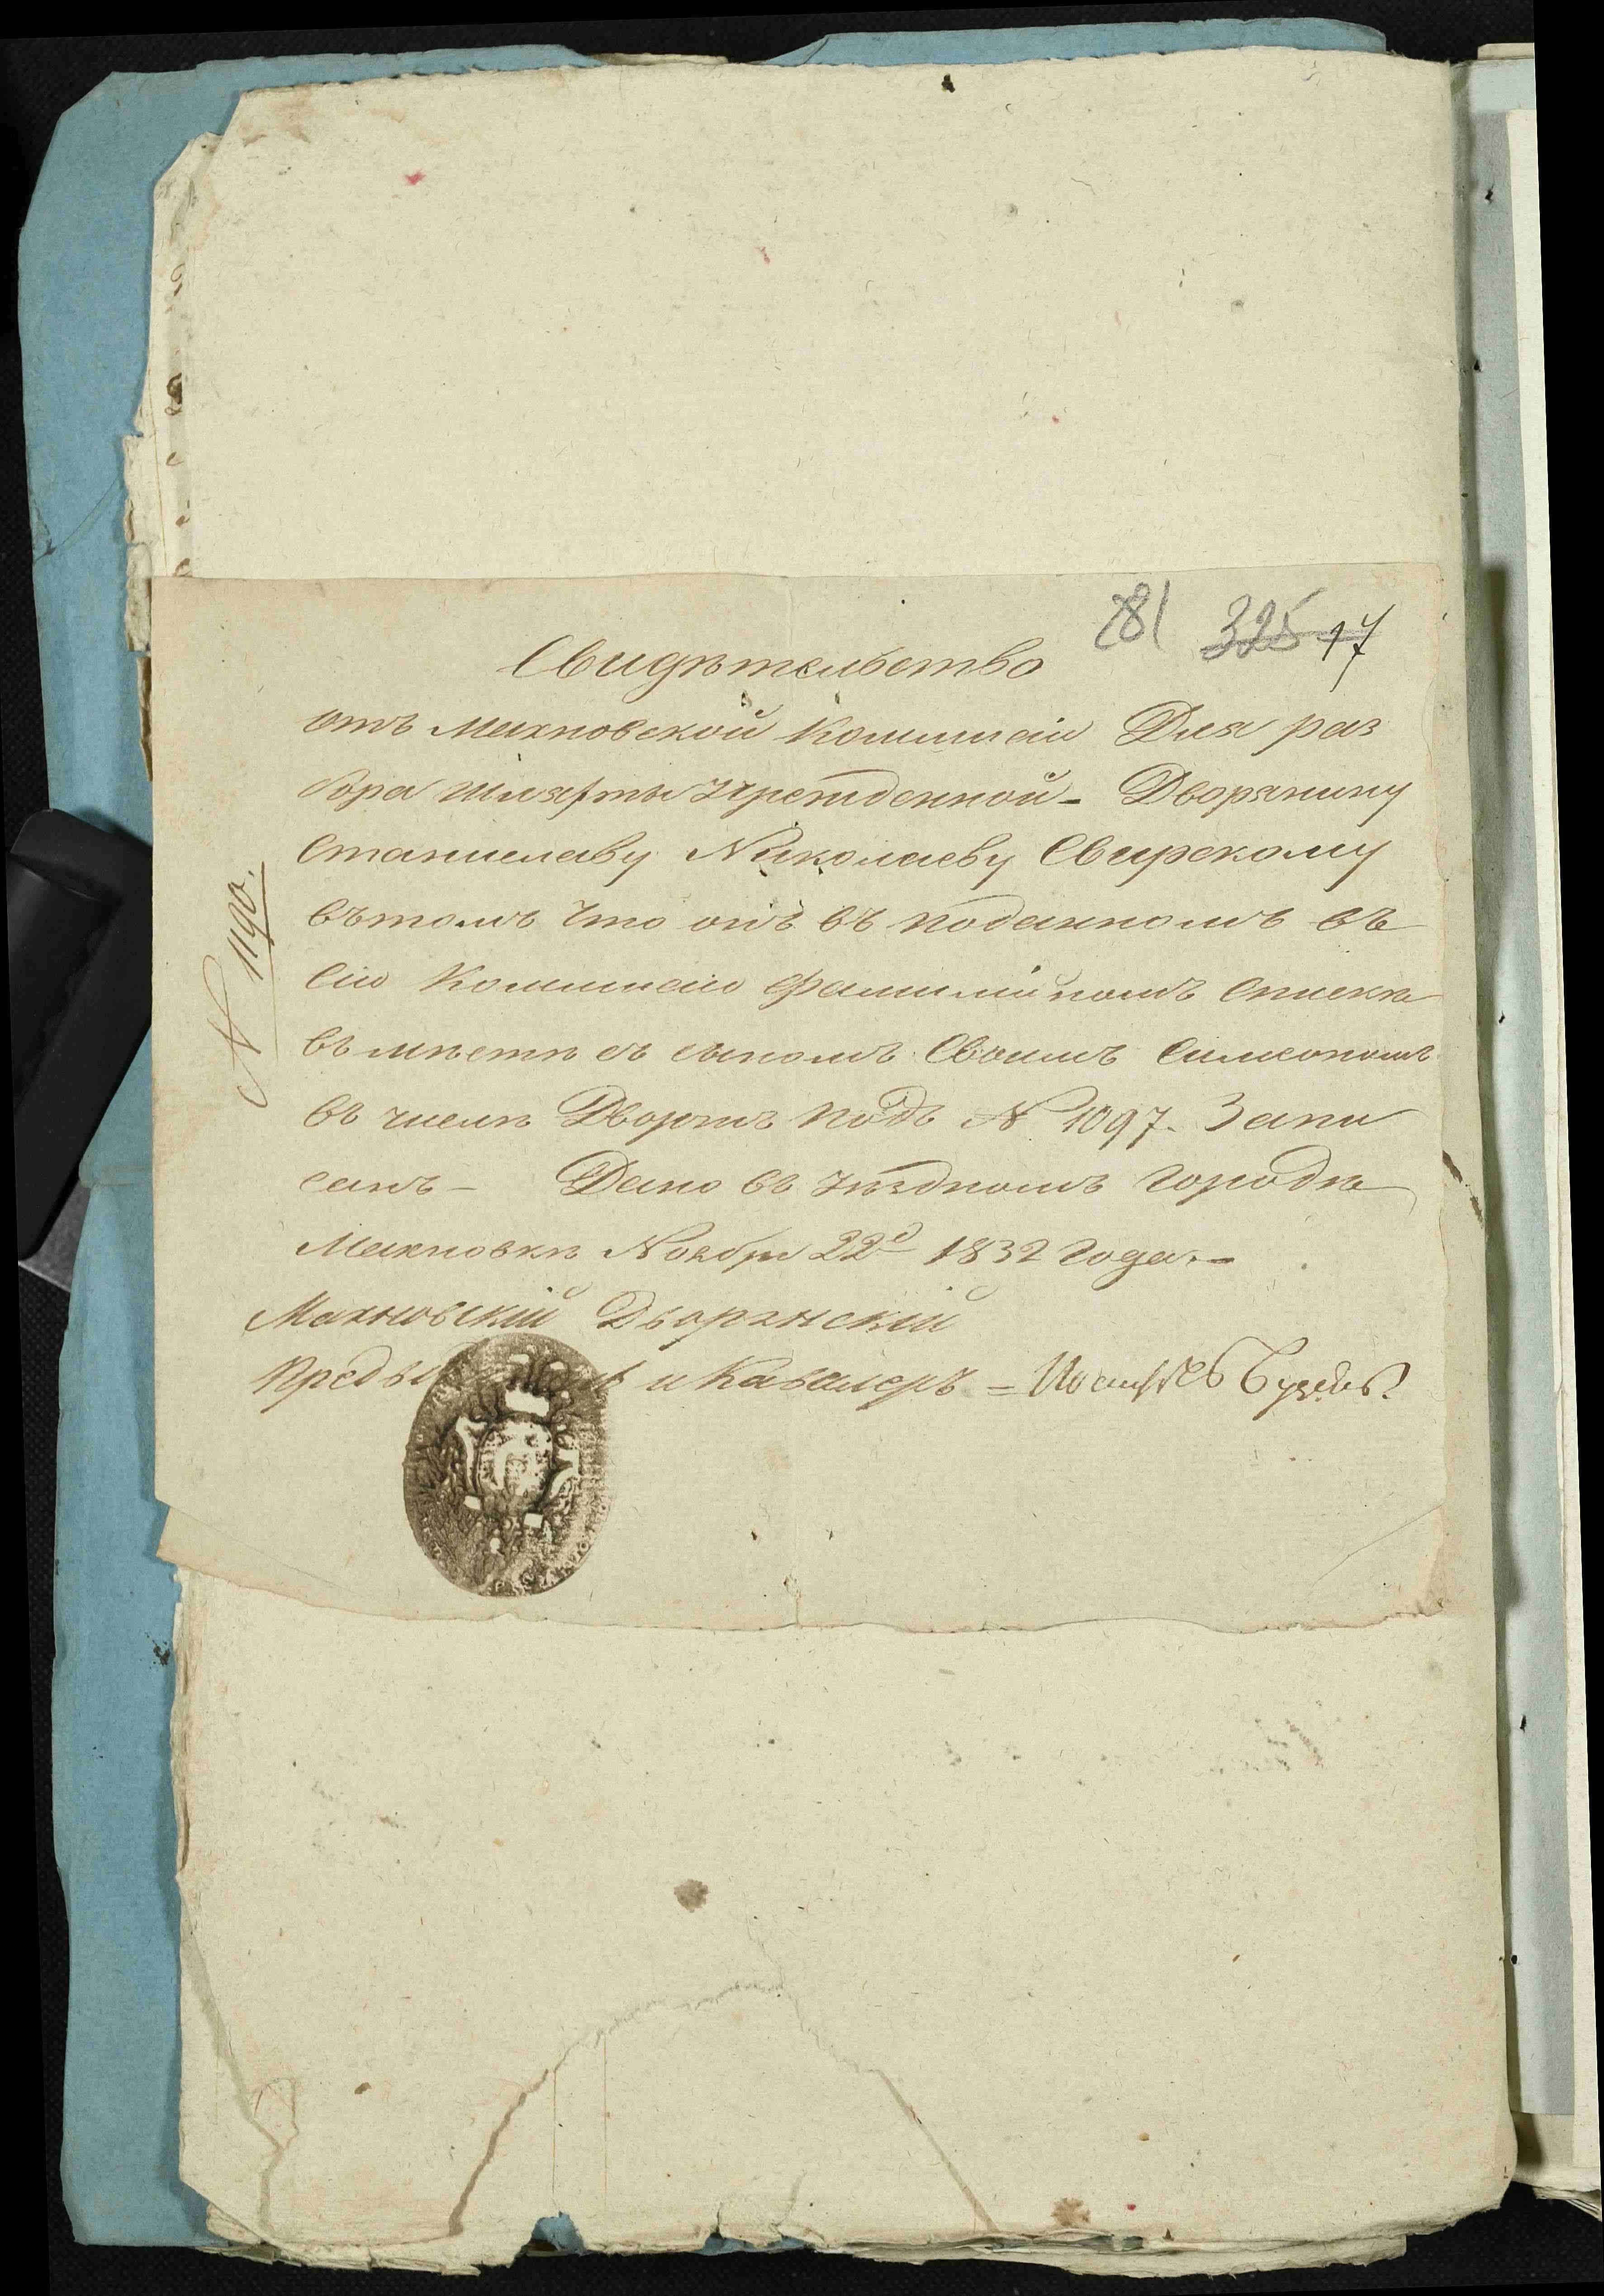 281 325 17
Свидѣтельство
отъ Махновской Коммисіи Для раз
бора шляхты Учрежденной - Дворянину
Станиславу Николаеву Свирскому
вътомъ Что онъ въ поданномъ въ
Сію Коммисію фамилійномъ Спискѣ
въмѣстѣ съ сыномъ Своимъ Симеономъ
въ числѣ Дворянъ подъ N 1097. Запи
санъ - Дано въ Уѣздномъ городѣ
Махновкѣ Ноября 22д 1832 Года. -
Махновскій Дворянскій
и Кавалеръ =
N 1190.